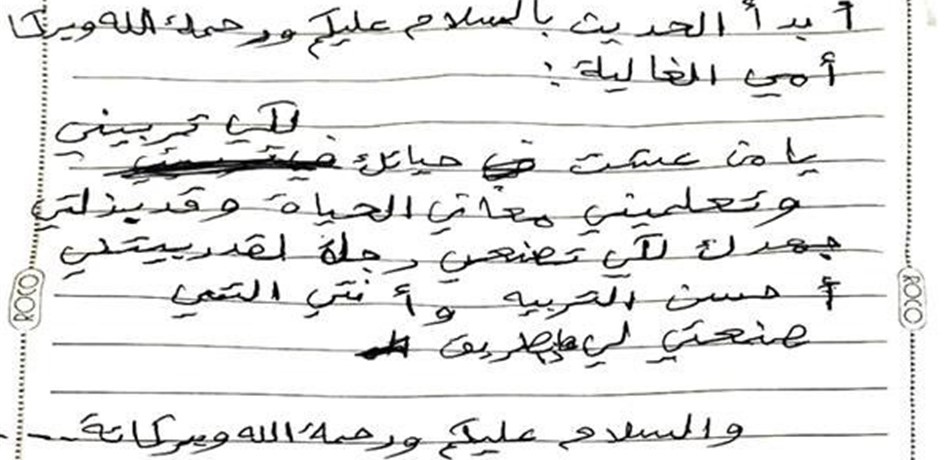 أبدأ الحديث بالسلام عليكم ورحمة الله وبركا
أمي الغالية :
لكي تربيني
يا من عشت حياتك
وتعلميني معاني الحياة وقد بذلتي
جهدك لكي تصنعي رجلة لقد ربيتني
أحسن التربيه وأنتي التي
صنعتي لي طريق
والسلام عليكم ورحمة الله وبركاتة
ROCO
ROCO